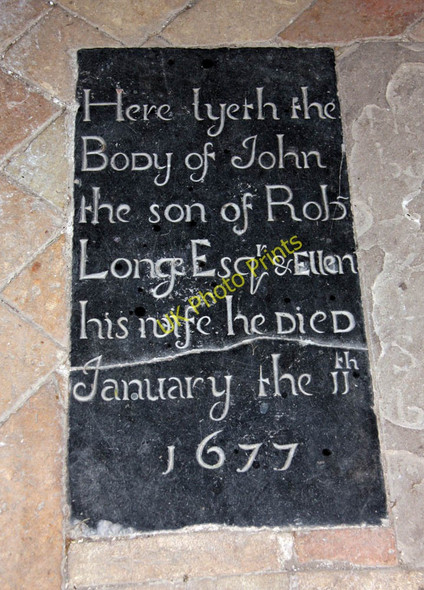 Here lyeth the
Body of John
the son of Robt
Longe Esqr & Ellen
his wife he died
January the 11th
1677
UK Photo Prints